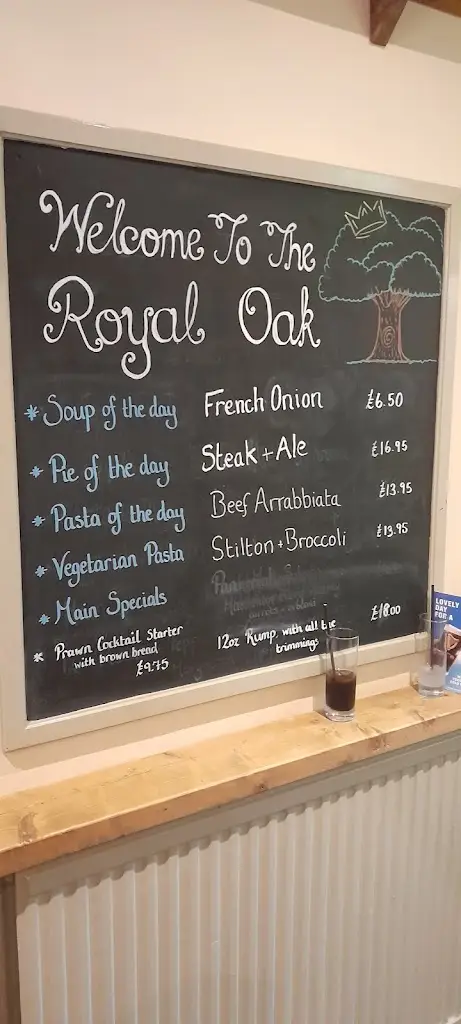 Welcome To The
Royal Oak
* Soup of the day French Onion £6.50
* Pie of the day Steak + Ale £16.95
* Pasta of the day Beef Arrabbiata £13.95
* Vegetarian Pasta Stilton + Broccoli £13.95
* Main Specials
* Prawn Cocktail Starter
with brown bread
£9.75
12oz Rump with all the
trimmings
£18.00
LOVELY
DAY
FOR A